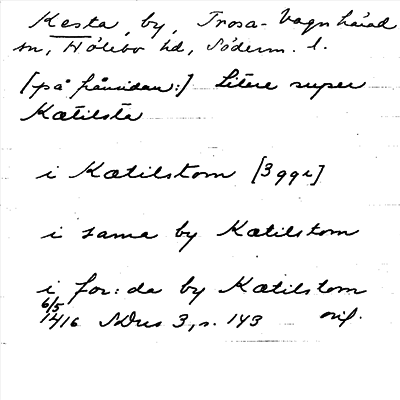 Kesta, by, Trosa-Vagnhärad
sn, Hölebo hd, Söderm. l.
[på framsidan:] Litere super
Kætilsta
i Kætilstom [3 ggr]
i sama by Kætilstom
i for:da by Kætilstom
6/5
1416 SDns 3, s. 143 orig.